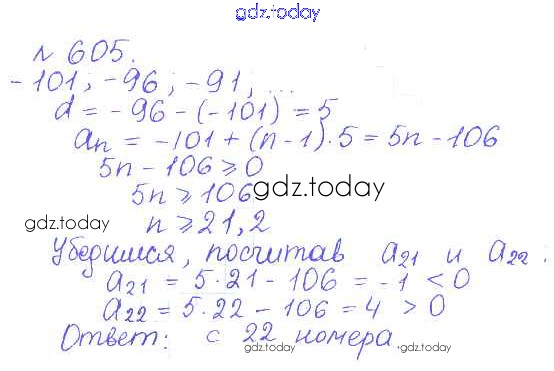 gdz.today
№ 605.
-101; -96; -91; ...
d = -96 - (-101) = 5
aₙ = -101 + (n-1)·5 = 5n - 106
5n - 106 ⩾ 0
5n ⩾ 106
gdz.today
gdz.today
n ⩾ 21,2
Убедимся, посчитав a₂₁ и a₂₂:
a₂₁ = 5·21 - 106 = -1 < 0
a₂₂ = 5·22 - 106 = 4 > 0
Ответ: с 22 номера.
gdz.today
gdz.today